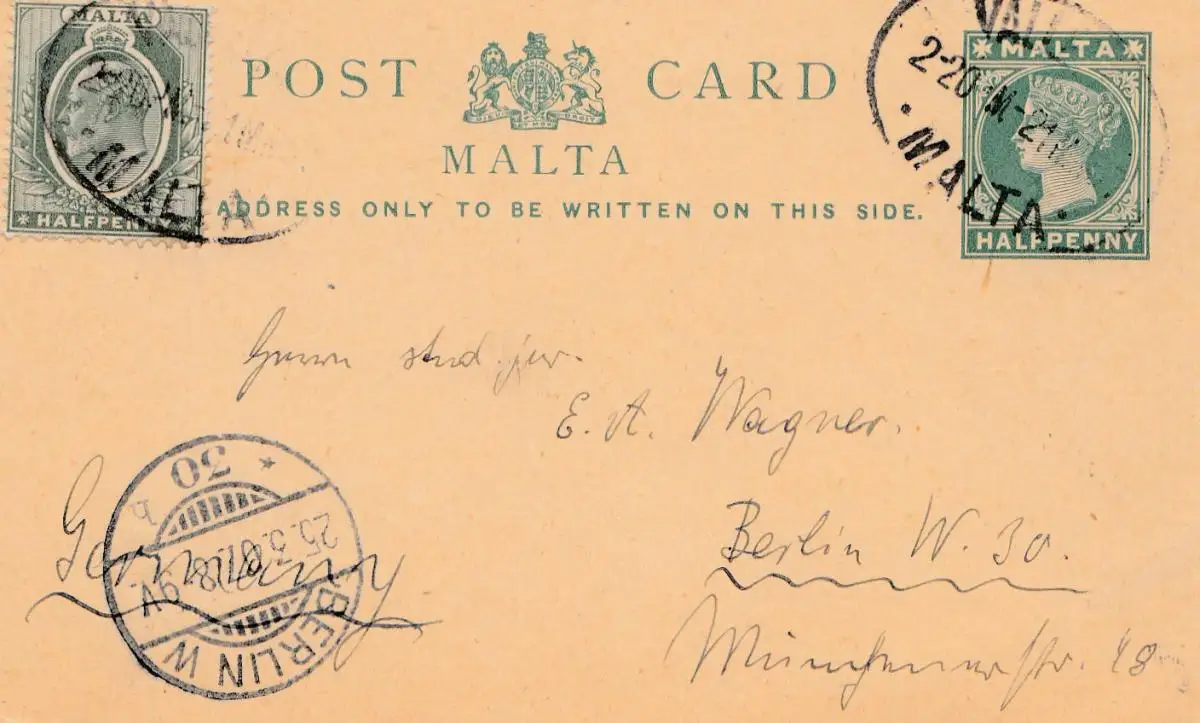 MALTA
HALFPENNY
MALTA
POST CARD
MALTA
ADDRESS ONLY TO BE WRITTEN ON THIS SIDE.
VALL
2-20
MALTA
MALTA
HALFPENNY
Herrn stud. jur.
E. A. Wagner.
Berlin W. 30.
Münchenerstr. 48
Germany
BERLIN W
30
b
25.3.07.
8-9V